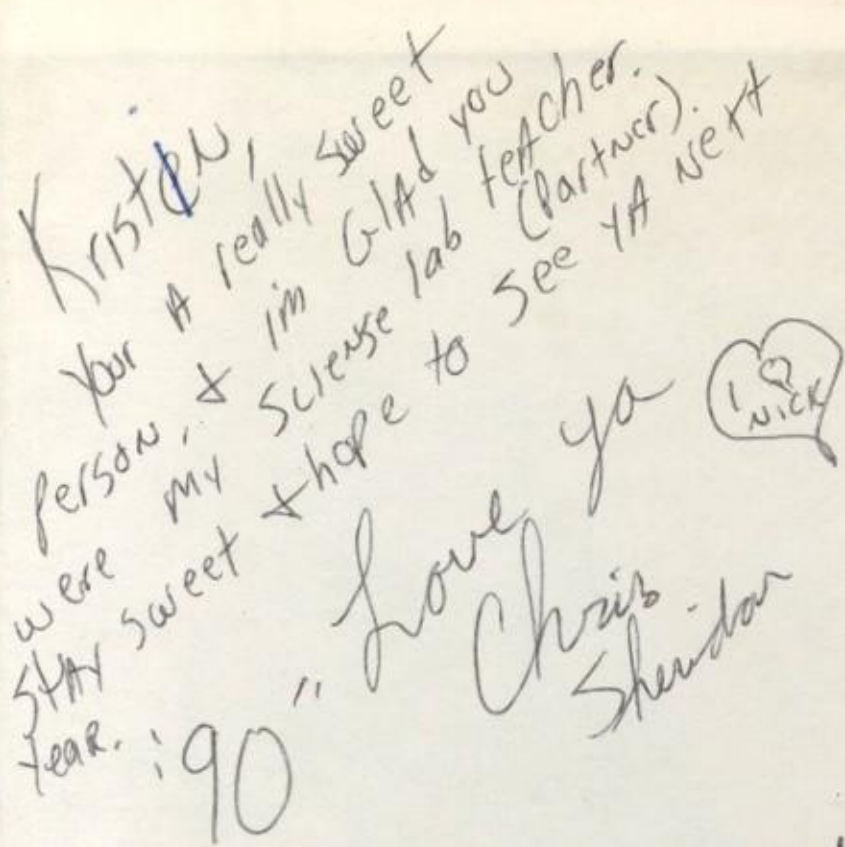 Kristin,
Your A really sweet
person, & im GlAd you
were my sciense lab teAcher.
STAY sweet & hope to see YA Next (Partner).
Year. '90"
Love ya
Chris
Sheridan
I ♡
NICK